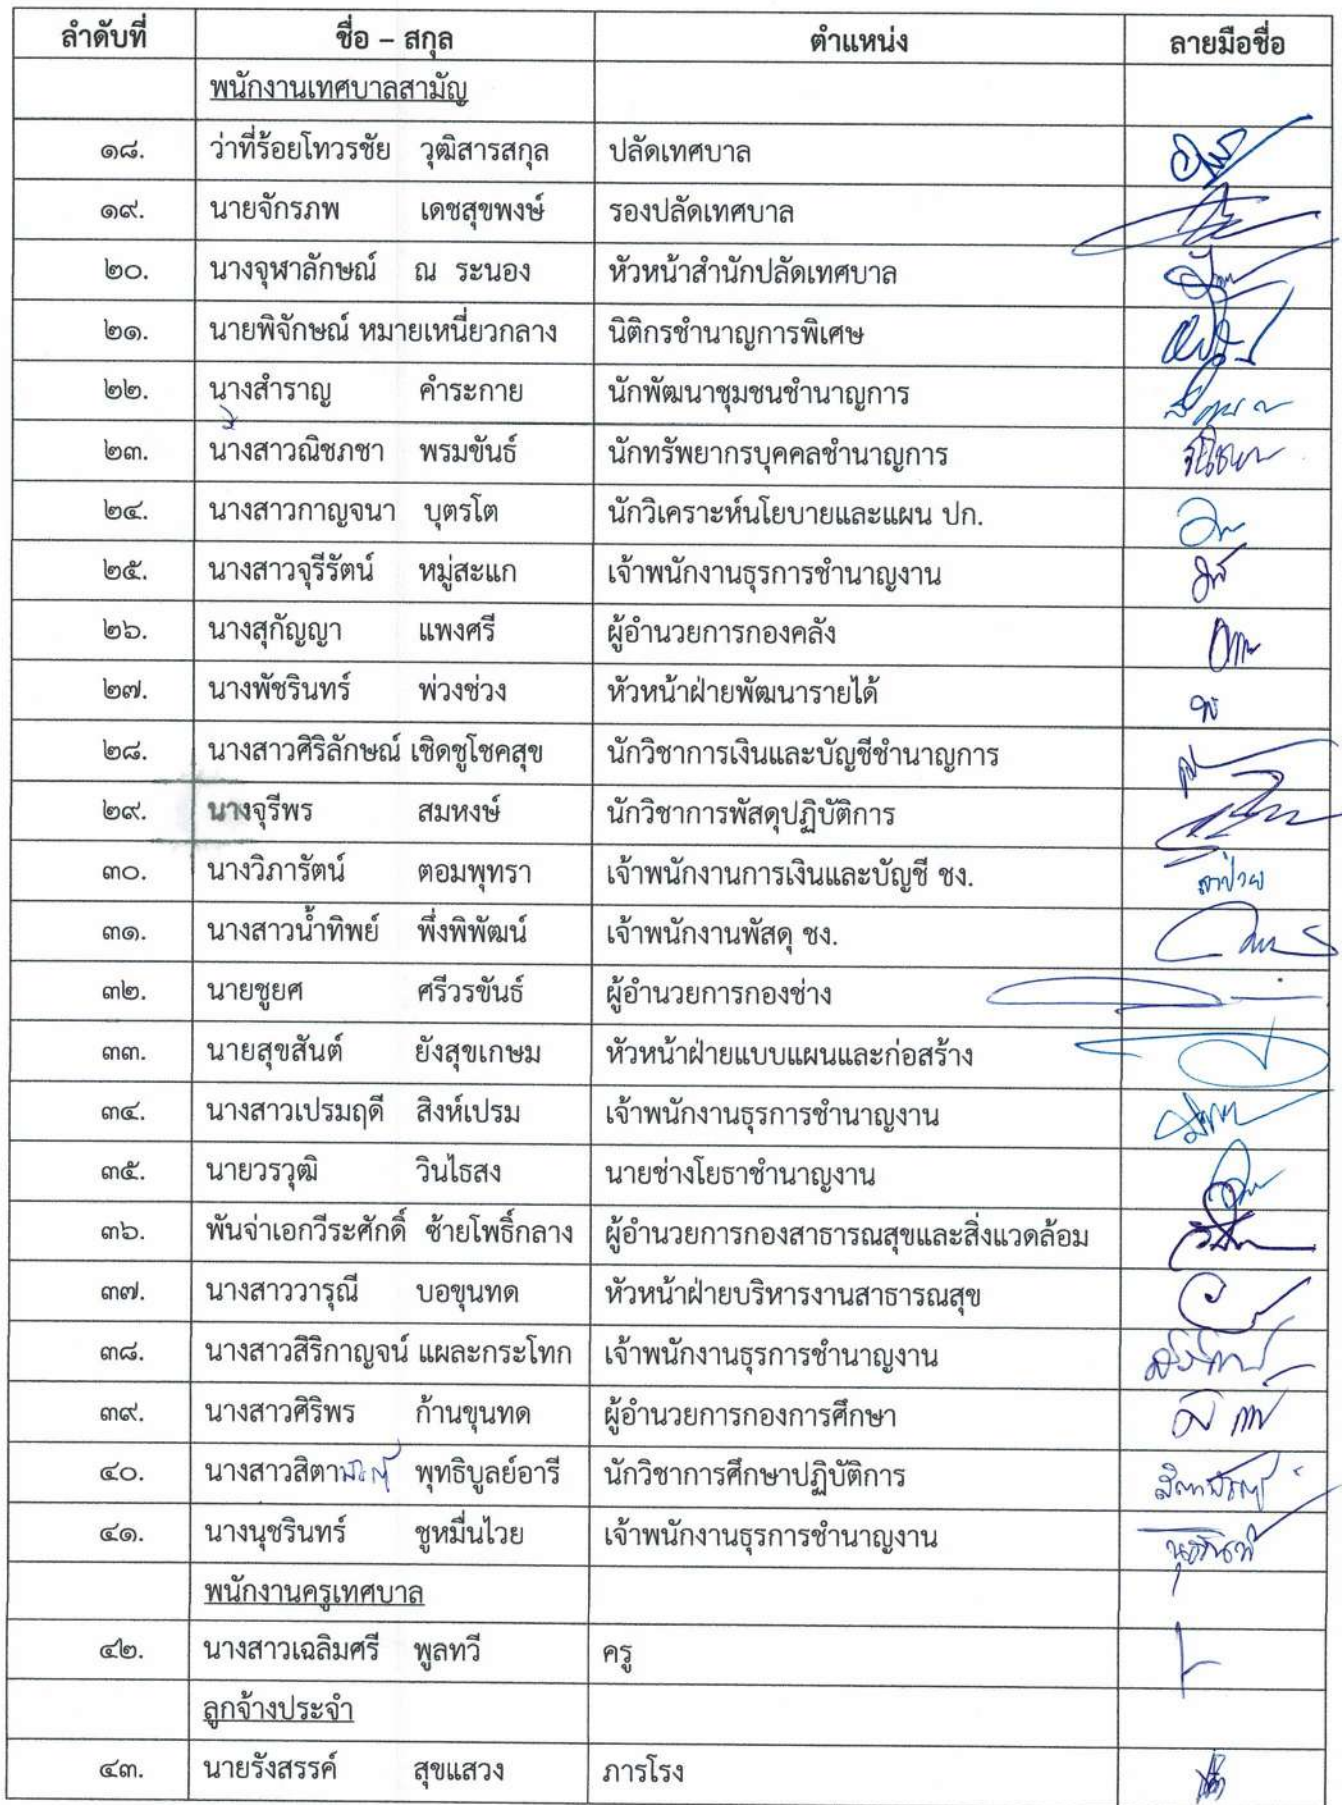 ลำดับที่ ชื่อ – สกุล ตำแหน่ง ลายมือชื่อ
พนักงานเทศบาลสามัญ
๑๘. ว่าที่ร้อยโทวรชัย วุฒิสารสกุล ปลัดเทศบาล
๑๙. นายจักรภพ เดชสุขพงษ์ รองปลัดเทศบาล
๒๐. นางจุฬาลักษณ์ ณ ระนอง หัวหน้าสำนักปลัดเทศบาล
๒๑. นายพิจักษณ์ หมายเหนี่ยวกลาง นิติกรชำนาญการพิเศษ
๒๒. นางสำราญ คำระกาย นักพัฒนาชุมชนชำนาญการ
๒๓. นางสาวณิชภชา พรมขันธ์ นักทรัพยากรบุคคลชำนาญการ
๒๔. นางสาวกาญจนา บุตรโต นักวิเคราะห์นโยบายและแผน ปก.
๒๕. นางสาวจุรีรัตน์ หมู่สะแก เจ้าพนักงานธุรการชำนาญงาน
๒๖. นางสุกัญญา แพงศรี ผู้อำนวยการกองคลัง
๒๗. นางพัชรินทร์ พ่วงช่วง หัวหน้าฝ่ายพัฒนารายได้
๒๘. นางสาวศิริลักษณ์ เชิดชูโชคสุข นักวิชาการเงินและบัญชีชำนาญการ
๒๙. นางจุรีพร สมหงษ์ นักวิชาการพัสดุปฏิบัติการ
๓๐. นางวิภารัตน์ ตอมพุทรา เจ้าพนักงานการเงินและบัญชี ชง. ลาป่วย
๓๑. นางสาวน้ำทิพย์ พึ่งพิพัฒน์ เจ้าพนักงานพัสดุ ชง.
๓๒. นายชูยศ ศรีวรขันธ์ ผู้อำนวยการกองช่าง
๓๓. นายสุขสันต์ ยังสุขเกษม หัวหน้าฝ่ายแบบแผนและก่อสร้าง
๓๔. นางสาวเปรมฤดี สิงห์เปรม เจ้าพนักงานธุรการชำนาญงาน
๓๕. นายวรวุฒิ วินไธสง นายช่างโยธาชำนาญงาน
๓๖. พันจ่าเอกวีระศักดิ์ ซ้ายโพธิ์กลาง ผู้อำนวยการกองสาธารณสุขและสิ่งแวดล้อม
๓๗. นางสาววารุณี บอขุนทด หัวหน้าฝ่ายบริหารงานสาธารณสุข
๓๘. นางสาวสิริกาญจน์ แผละกระโทก เจ้าพนักงานธุรการชำนาญงาน
๓๙. นางสาวศิริพร ก้านขุนทด ผู้อำนวยการกองการศึกษา
๔๐. นางสาวสิตา พุทธิบูลย์อารี นักวิชาการศึกษาปฏิบัติการ
๔๑. นางนุชรินทร์ ชูหมื่นไวย เจ้าพนักงานธุรการชำนาญงาน นุชรินทร์
พนักงานครูเทศบาล
๔๒. นางสาวเฉลิมศรี พูลทวี ครู
ลูกจ้างประจำ
๔๓. นายรังสรรค์ สุขแสวง ภารโรง